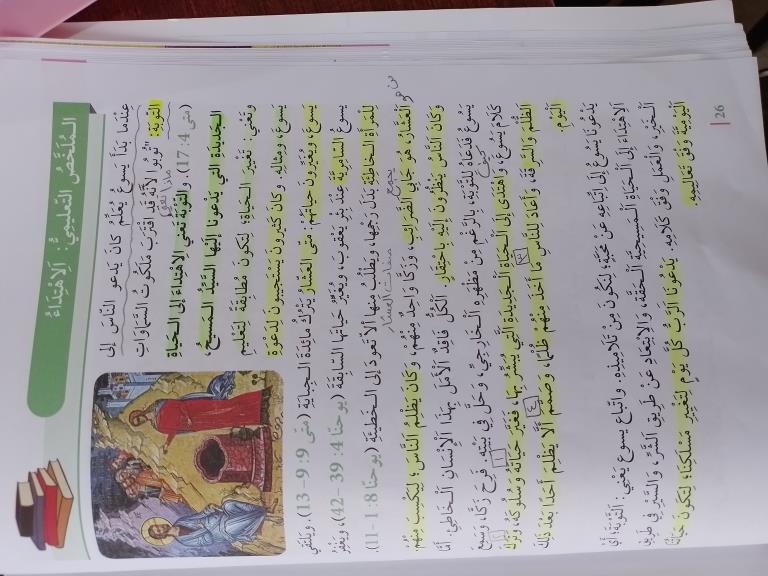 الـمُلَخَّصُ التَّعْليمِيُّ: اَلِاهْتِدَاءُ
عِنْدَما بَدَأَ يَسوعُ يُعَلِّمُ كانَ يَدعو النّاسَ إلى
التَّوْبَةِ: "توبُوا لِأَنَّهُ قَدِ اقْتَرَبَ مَلَكُوتُ السَّمَاوَاتِ"
ماذا تعني
(متى 4: 17). والتَّوبَةُ تَعْنِي الِاهْتِداءَ إلى الـحَيَاةِ
الـجَديدَةِ الَّتي يَدْعُونا إلَيْها السَّيِّدُ الـمَسيحُ،
وَتَعْنِي: تَغْييرَ الـحَياةِ؛ لِتَكونَ مُطابِقَةً لِتَعْليمِ
يَسوعَ، وَمِثالِهِ. وَكانَ كَثيرونَ يَسْتَجيبونَ لِدَعْوَةِ
يَسوعَ، وَيُغَيِّرونَ حَياتَهُمْ: مَتَى العَشّارُ يَتْرُكُ مائِدَةَ الـجِبايَةِ (متى 9: 9– 13). وَيَلتَقي
يسوعُ السّامِرِيَّةَ عِنْدَ بِئْرِ يَعْقوبَ، وَيُغَيِّرُ حَياتَها السّابِقَةَ (يوحنّا 4: 39– 42)، وَيَغْفِرُ
لِلمَرأَةِ الـخاطِئَةِ بَدَلَ رَجْمِها، وَيَطْلُبُ مِنها أَلّا تَعودَ إلى الـخَطيئَةِ (يوحنّا 8: 1– 11).
من هو
العَشّارُ: هُوَ جابِي الضَّرائِبِ، وَزَكّا واحِدٌ مِنْهُمْ، وَكانَ يَظْلِمُ النّاسَ؛ لِيَكْسِبَ مِنْهُمْ.
يجمع
وَكانَ النّاسُ يَنْظُرونَ إلَيْهِ بِاحْتِقارٍ. الكُلُّ فاقِدُ الأَمَلِ بِهَذا الإنْسانِ الـخاطِئِ. أَمّا
يَسُوعُ فَدَعاهُ لِلتَّوْبَةِ، بِالرَّغْمِ مِن مَظْهَرِهِ الـخارِجِيِّ، وَحَلَّ فِي بَيْتِهِ. فَرِحَ زَكّا، وَسَمِعَ
كَلامَ يَسُوعَ، وَاهْتَدى إلى الـحَياةِ الـجَديدَةِ الَّتِي يُبَشِّرُ بِها، فَغَيَّرَ حَيَاتَهُ وَسُلُوكَهُ، وَتَرَكَ
الظُّلْمَ وَالسَّرِقَةَ، وَأَعادَ لِلنّاسِ مَا أَخَذَ مِنْهُمْ ظُلْمًا، وَصَمَّمَ أَلَّا يَظْلِمَ أَحَدًا بَعْدَ ذَلِكَ
اليَوْمِ.
يَدْعُونَا يَسُوعُ إلى اتِّباعِهِ عَنْ مَحَبَّةٍ؛ لِنَكُونَ مِنْ تَلاميذِهِ. وَاتِّباعُ يسوعَ يَعْنِي: اَلتَّوْبَةَ؛ أَيِ
الِاهْتِداءَ إلى الـحَيَاةِ الـمَسيحِيَّةِ الـحَقَّةِ، وَالِابْتِعادَ عَنْ طَرِيقِ الشَّرِّ، وَالسَّيْرَ فِي طَرِيقِ
الـخَيْرِ، وَالْعَمَلَ وَفْقَ كَلامِهِ. يَدْعُونَا الرَّبُّ كُلَّ يَوْمٍ لِتَغْييرِ مَسْلَكِنا؛ لِتَكُونَ حَيَاتُنا
الْيَوْمِيَّةُ وَفْقَ تَعَالِيمِهِ.
26